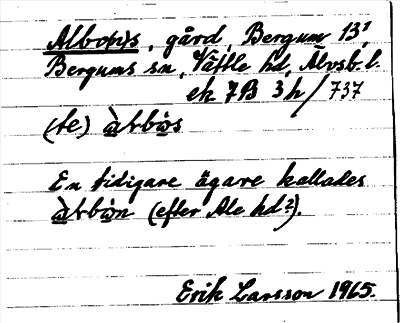 Albo(n)s, gård, Bergum 13¹
Bergums sn, Vättle hd, Älvsb. l.
ek 7B 3h/737
(te) àlbos
En tidigare ägare kallades
àlbon (efter Ale hd?).
Erik Larsson 1965.